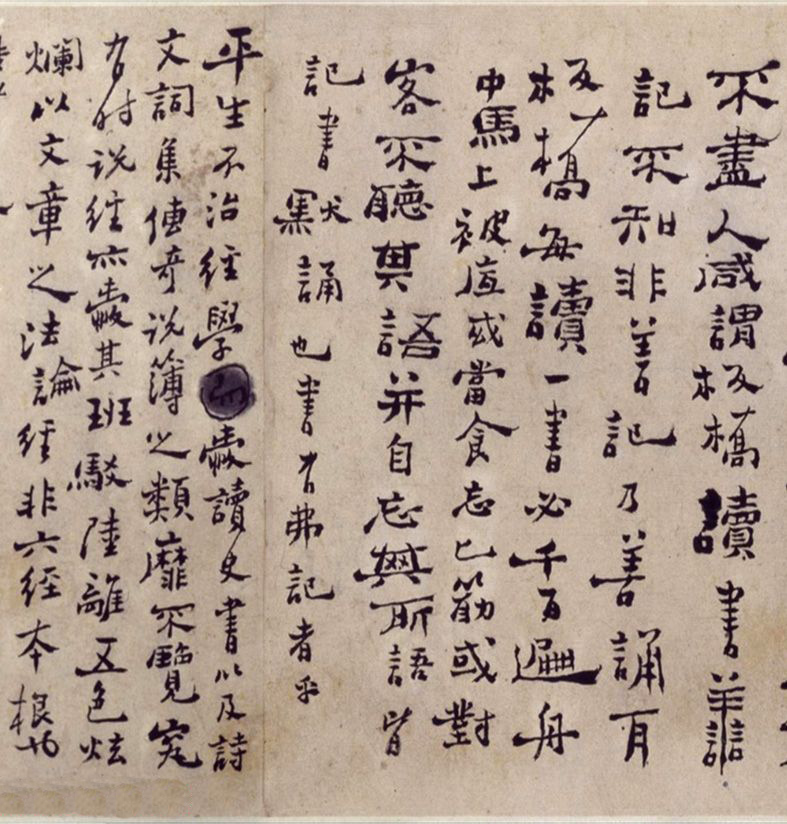 不盡人咸謂板橋讀書善
記不知非善記乃善誦耳
板橋每讀一書必千百遍舟
中馬上被底或當食忘匕筯或對
客不聽其語并自忘其所語皆
記書默誦也書有弗記者乎
平生不治經學愛讀史書以及詩
文詞集傳奇说簿之類靡不覽究
有时说經亦愛其班駁陸離五色炫
爛以文章之法論經非六経本根也